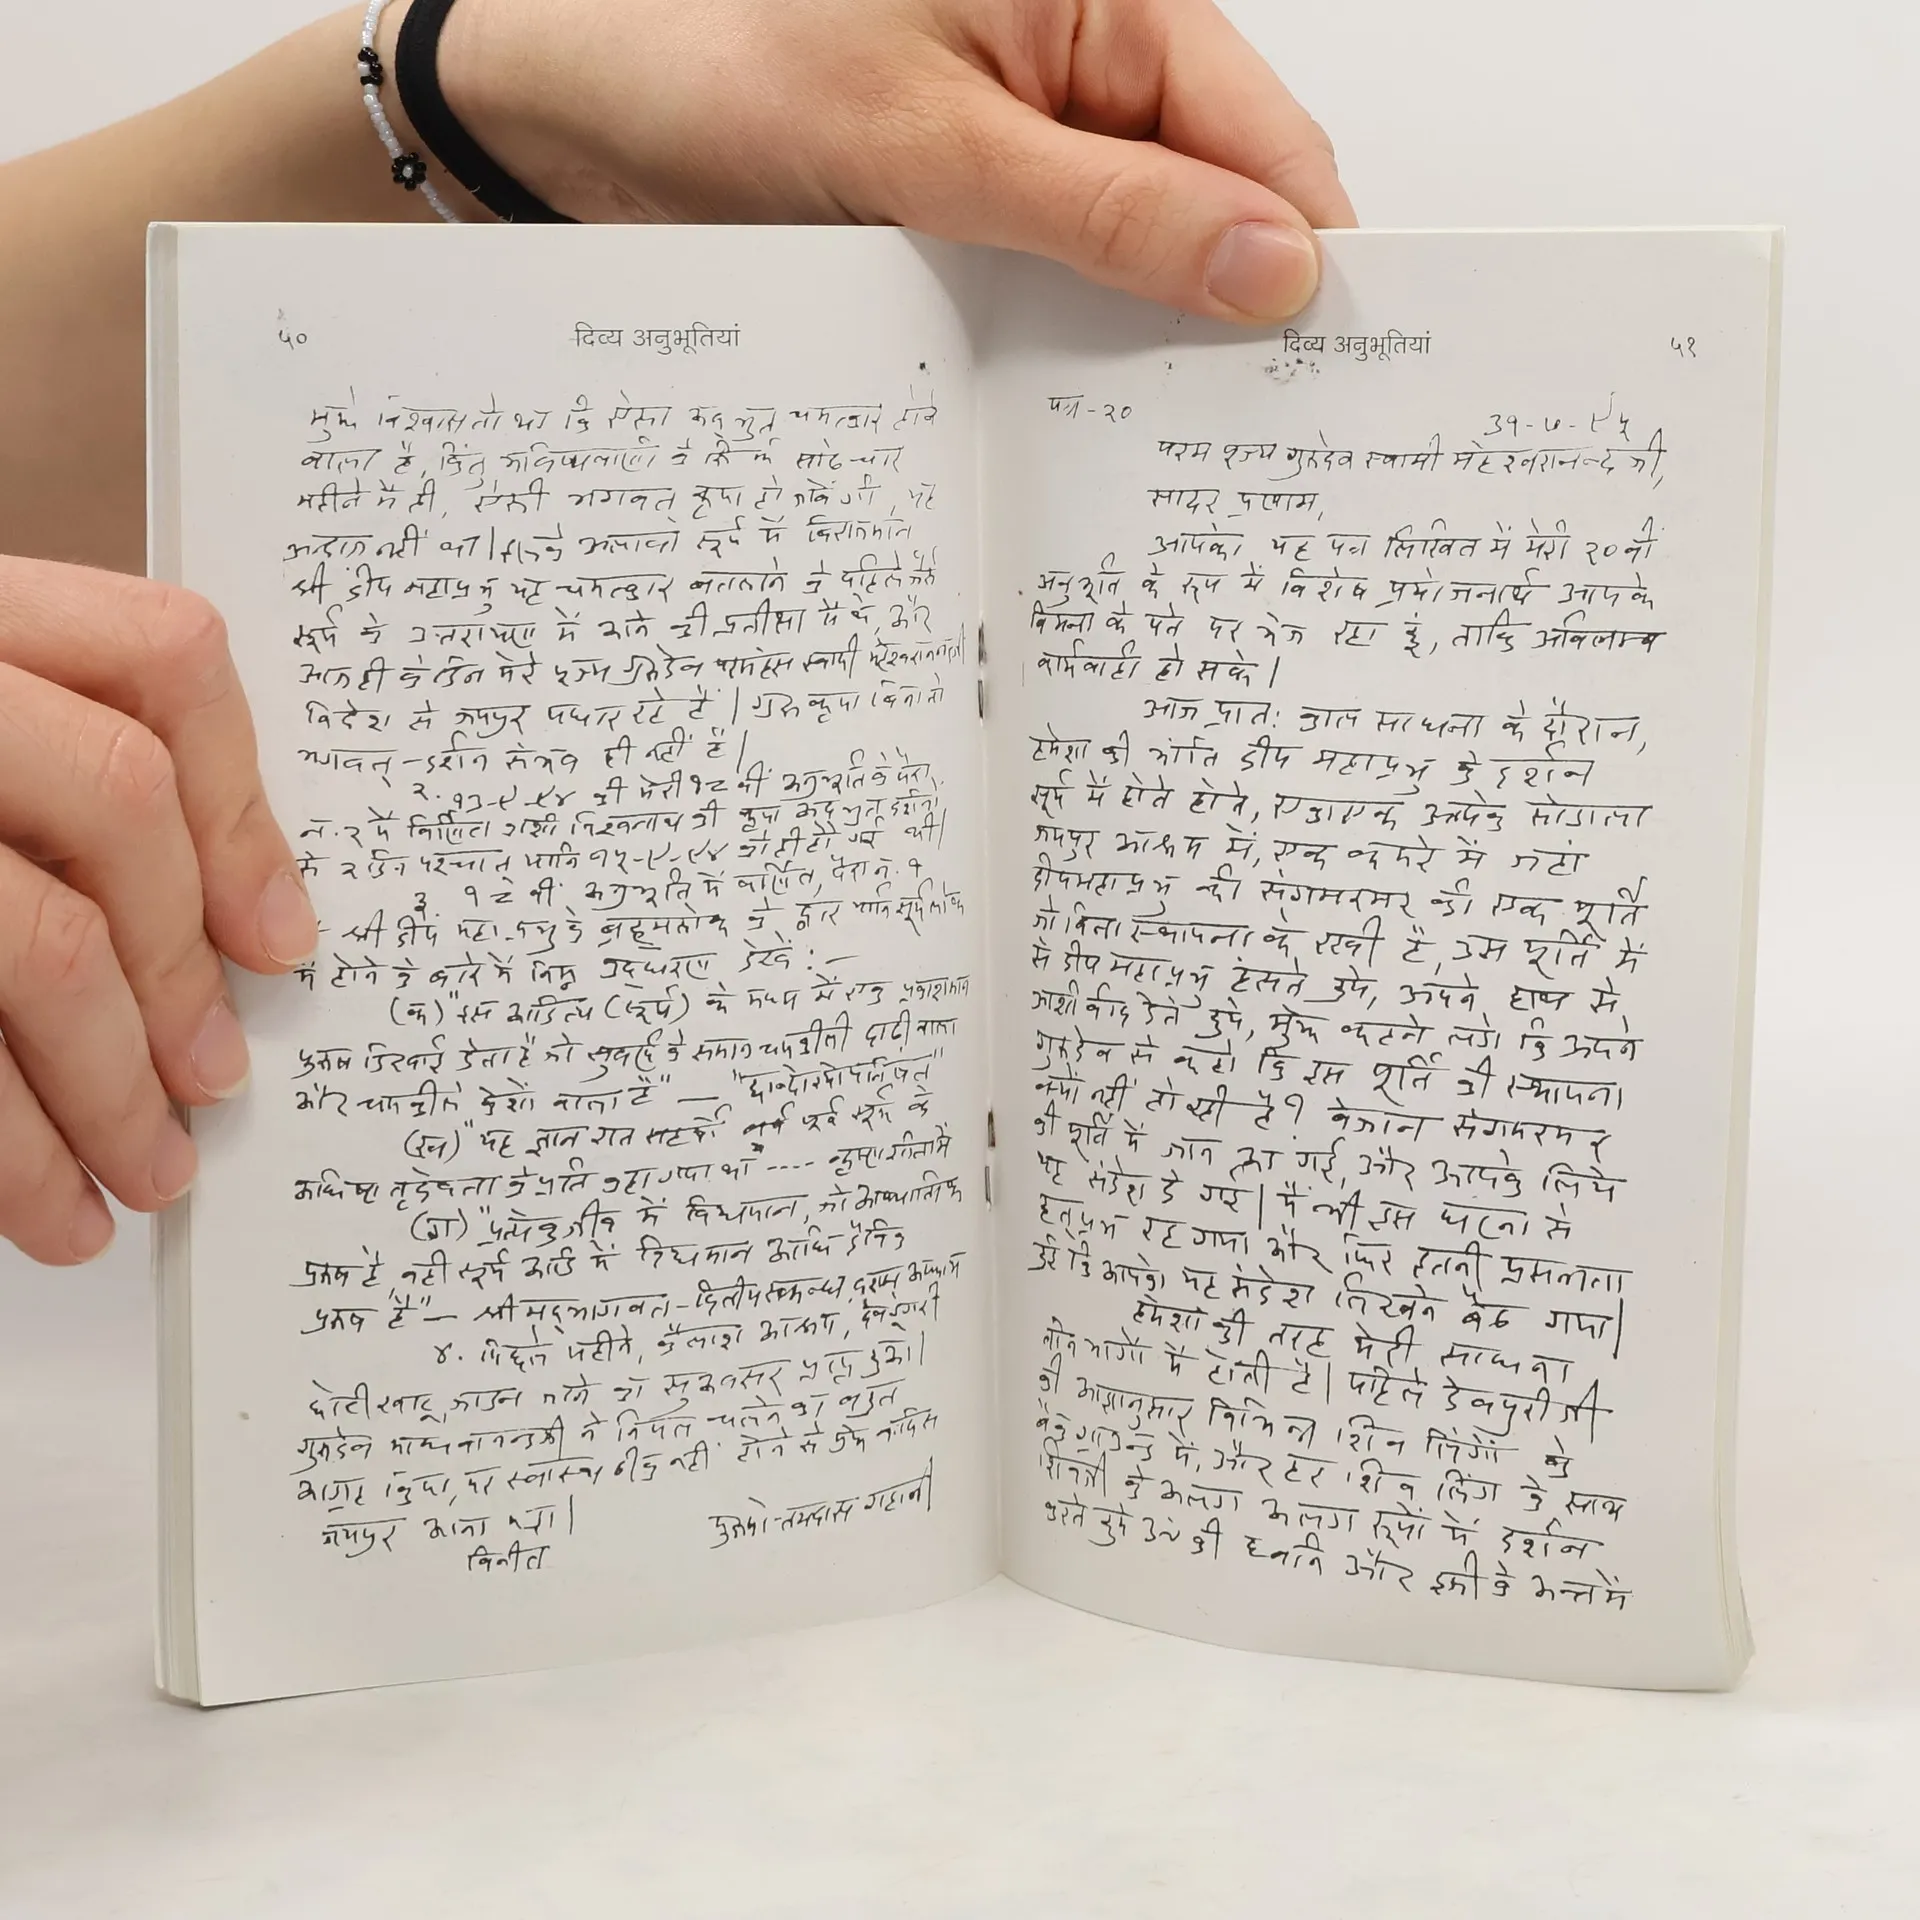 ५०
दिव्य अनुभूतियां
मुझे विश्वास तो था कि ऐसा अद्भुत चमत्कार होने
वाला है, किंतु भविष्यवाणी के कि साढे चार
महीने में ही, ऐसी भगवत् कृपा हो जावेगी, यह
अन्दाज नहीं था। इसके अलावा सूर्य में विराजमान
श्री दीप महाप्रभु यह चमत्कार बतलाने के पहिले जैसे
सूर्य के उत्तरायण में आने की प्रतीक्षा में थे, और
आज ही के दिन मेरे पूज्य गुरुदेव परमहंस स्वामी महेश्वरानन्दजी
विदेश से जयपुर पधार रहे हैं। गुरु कृपा बिना तो
भगवत्-दर्शन संभव ही नहीं है।
२. १३-९-९४ की मेरी १८ वीं अनुभूति के पैरा
नं. २ में वर्णित काशी विश्वनाथ की कृपा अद्भुत दर्शनों
के २ दिन पश्चात् यानि १५-९-९४ को ही हो गई थी।
३. १८ वीं अनुभूति में वर्णित, पैरा नं. १
श्री दीप महाप्रभु के ब्रह्मलोक के द्वार यानि सूर्यलोक
में होने के बारे में निम्न उद्धरण देखें:-
(क) "इस आदित्य (सूर्य) के मध्य में एक प्रकाशमान
पुरुष दिखाई देता है जो सुवर्ण के समान चमकीली दाढी वाला
और चमकीले केशों वाला है" - "छान्दोग्योपनिषत"
(ख) "यह ज्ञान शत सहस्त्रों वर्ष पूर्व सूर्य के
अधिष्ठातृदेवता के प्रति कहा गया था ---- कृष्ण गीता में
(ग) "प्रत्येक जीव में विद्यमान, जो आध्यात्मिक
पुरुष है, वही सूर्य आदि में विद्यमान आधि दैविक
पुरुष है" - श्रीमद्भागवत-द्वितीय स्कन्ध, दशम अध्याय
४. पिछले महीने, कैलाश आश्रम, देवडूंगरी
छोटी खाटू, जाडन जाने का सुअवसर प्राप्त हुआ।
गुरुदेव माधवानन्दजी ने निपल चलने का बहुत
आग्रह किया, पर स्वास्थ्य ठीक नहीं होने से मुझे वापिस
जयपुर आना पड़ा।
विनीत
पुरुषोत्तमदास
दिव्य अनुभूतियां
५१
पत्र-२०
३१-७-९५
परम पूज्य गुरुदेव स्वामी महेश्वरानन्द जी,
सादर प्रणाम,
आपको यह पत्र लिखित में मेरी २० वीं
अनुभूति के रूप में विशेष प्रयोजनार्थ आपके
वियना के पते पर भेज रहा हूं, ताकि अविलम्ब
कार्यवाही हो सके।
आज प्रात: काल साधना के दौरान,
हमेशा की भांति दीप महाप्रभु के दर्शन
सूर्य में होते होते, एकाएक आपके सोडाला
जयपुर आश्रम में, एक कमरे में जहां
दीपमहाप्रभु की संगमरमर की एक मूर्ति
जो बिना स्थापना के रखी है, उस मूर्ति में
से दीप महाप्रभु हंसते हुये, अपने हाथ से
आशीर्वाद देते हुये, मुझे कहने लगे कि अपने
गुरुदेव से कहो कि इस मूर्ति की स्थापना
क्यों नहीं हो रही है? बेजान संगमरमर
की मूर्ति में जान आ गई, और आपके लिये
यह संदेश दे गई। मैं भी इस घटना से
हतप्रभ रह गया और फिर इतनी प्रसन्नता
हुई कि आपको यह संदेश लिखने बैठ गया।
हमेशा की तरह मेरी साधना
तीन भागों में होती है। पहिले देवपुरीजी
की आज्ञानुसार विभिन्न शिव लिंगों के
बैकग्राउन्ड में, और हर शिव लिंग के साथ
शिवजी के अलग अलग रूपों में दर्शन
करते हुये ॐ की ध्वनि और इसी के अन्त में